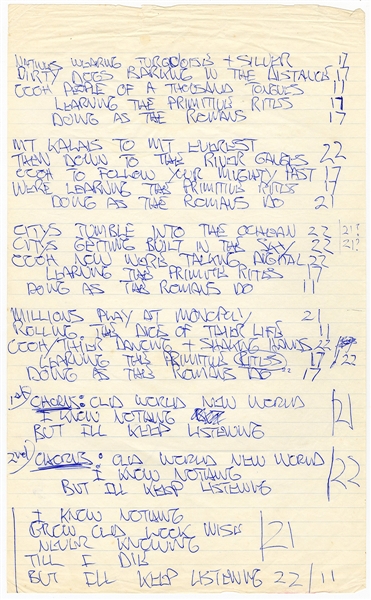 NATIVES WEARING TURQUOISE + SILVER 17
DIRTY DOGS BARKING IN THE DISTANCE 17
OOOH PEOPLE OF A THOUSAND TONGUES 11
LEARNING THE PRIMITIVE RITES 17
DOING AS THE ROMANS 17
MT KALAIS TO MT EVEREST 22
THEN DOWN TO THE RIVER GANGES 22
OOOH TO FOLLOW YOUR MIGHTY PAST 17
WERE LEARNING THE PRIMITIVE RITES 17
DOING AS THE ROMANS DO 21
CITYS TUMBLE INTO THE OCHEAN 22 21?
CITYS GETTING BUILT IN THE SKY 22 21?
OOOH NOW WERE TALKING DIGITAL 22
LEARNING THE PRIMITIVE RITES 17
DOING AS THE ROMANS DO 11
MILLIONS PLAY AT MONOPOLY 21
ROLLING THE DICES OF THIER LIFES 11
OOOH THIER DANCING + SHAKING HANDS 22
LEARNING THE PRIMITIVE RITES 17 22
DOING AS THE ROMANS DO 17
1st CHORUS: OLD WORLD NEW WORLD
I KNOW NOTHING 21
BUT ILL KEEP LISTENING
2nd CHORUS: OLD WORLD NEW WORLD
I KNOW NOTHING 22
BUT ILL KEEP LISTENING
I KNOW NOTHING
GROW OLD LOOK WISE 21
NEVER KNOWING
TILL I DIE
BUT ILL KEEP LISTENING 22/11